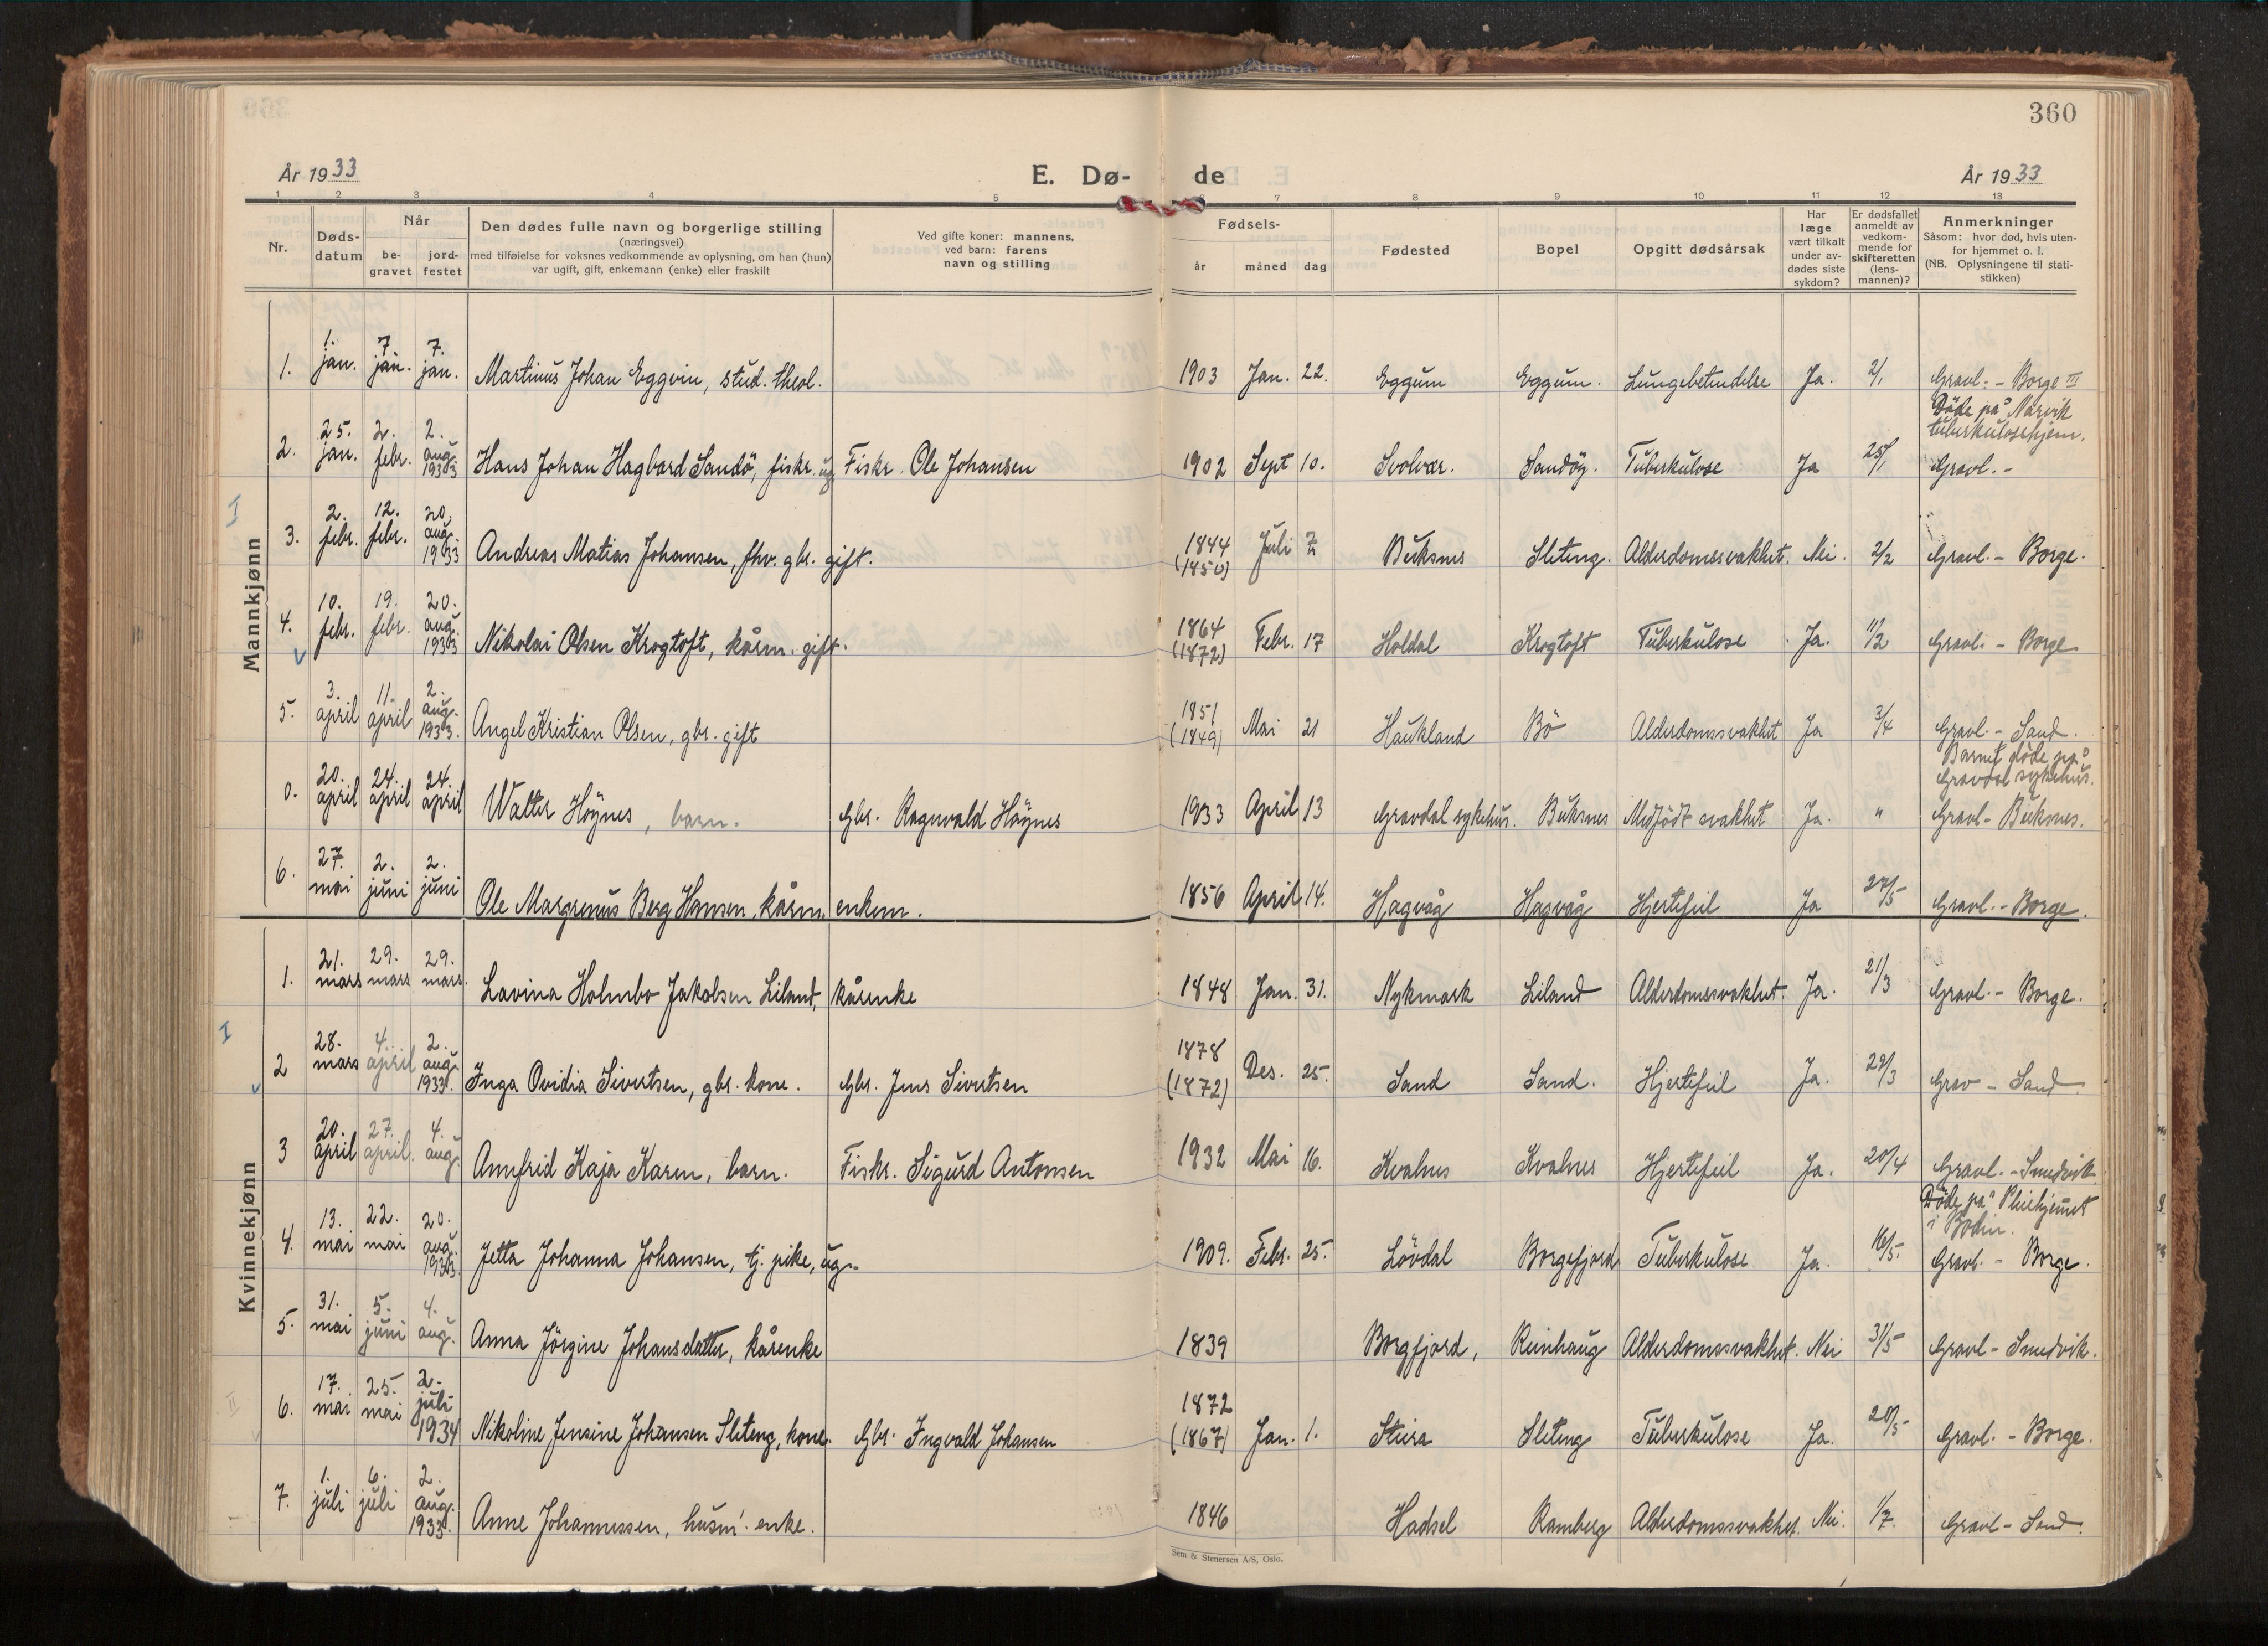 360
År 1933 E. Dø- de År 1933
1 2 3 4 5 6 7 8 9 10 11 12 13
Nr. Døds-datum Når be-gravet jord-festet Den dødes fulle navn og borgerlige stilling (næringsvei) med tilføielse for voksnes vedkommende av oplysning, om han (hun) var ugift, gift, enkemann (enke) eller fraskilt Ved gifte koner: mannens, ved barn: farens navn og stilling Fødsels- år måned dag Fødested Bopel Opgitt dødsårsak Har læge vært tilkalt under av-dødes siste sykdom? Er dødsfallet anmeldt av vedkom-mende for skifteretten (lens-mannen)? Anmerkninger Såsom: hvor død, hvis uten-for hjemmet o. l. (NB. Oplysningene til stati-stikken)
Mannkjønn
1. 1. jan. 7 jan. 7. jan. Martinus Johan Eggvin, stud. theol. 1903 Jan. 22. Eggum Eggum. Lungebetendelse Ja. 2/1 Gravl. - Borge III
2. 25. jan. 2. febr. 2. aug. 1933 Hans Johan Hagbard Sandö, fiskr. ug. Fiskr. Ole Johansen 1902 Sept 10. Svolvær. Sandöy. Tuberkulose Ja 25/1 Döde på Narvik tuberkulosehjem. Gravl. -
3. 2. febr. 12. febr. 20. aug. 1933 Andreas Matias Johansen, fhv. gbr. gift. 1844 (1850) Juli 7 Buksnes Sleteng. Alderdomssvakhet. Nei. 2/2 Gravl. - Borge.
4. 10. febr. 19. febr. 20. aug. 1933 Nikolai Olsen Krogtoft, kårm. gift. 1864 (1872) Febr. 17 Holdal Krogtoft Tuberkulose Ja. 11/2 Gravl. - Borge
5. 3. april 11. april 2. aug. 1933. Angel Kristian Olsen, gbr. gift 1851 (1849) Mai 21 Haukland Bö Alderdomssvakhet Ja 3/4 Gravl. - Sand.
0. 20. april 24. april 24. april Walter Höynes, barn. Gbr. Ragnvald Höynes 1933 April 13 Gravdal sykehus. Buksnes Medfödt svakhet Ja. " Barnet döde på Gravdal sykehus. Gravl- Buksnes.
6. 27. mai 2. juni 2. juni Ole Margrenus Berg Hansen, kårm. enkem. 1856 April 14. Hagvåg Hagvåg Hjertefeil Ja 27/5 Gravl. - Borge.
Kvinnekjønn
1. 21. mars 29. mars 29. mars. Lavina Holmbo Jakobsen Liland, kårenke 1848 Jan. 31. Nykmark Liland Alderdomssvakhet. Ja. 21/3 Gravl. - Borge.
2 28. mars 4. april 2. aug. 1933. Inga Ovidia Sivertsen, gbr. kone. Gbr. Jens Sivertsen 1878 (1872) Des. 25. Sand Sand. Hjertefeil Ja. 29/3 Grav - Sand
3 20. april 27. april. 4. aug. Annfrid Kaja Karen, barn. Fiskr. Sigurd Antonsen 1932 Mai 16. Kvalnes Kvalnes Hjertefeil Ja. 20/4 Gravl. - Smedvik
4. 13. mai 22. mai 20. aug. 1933. Jetta Johanna Johansen, tj. pike, ug. 1909. Febr. 25. Lövdal Borgefjord Tuberkulose Ja. 16/5. Döde på Pleiehjemet i Bodin. Gravl. - Borge.
5. 31. mai 5. juni 4. aug. Anna Jörgine Johansdatter, kårenke 1839 Borgfjord, Reinhaug Alderdomssvakhet. Nei 31/5 Gravl - Smedvik.
6. 17. mai 25. mai 2. juli 1934 Nikoline Jensine Johansen Sleteng, kone. Gbr. Ingvald Johansen 1872 (1867) Jan. 1. Steira Sleteng Tuberkulose Ja. 20/5 Gravl. - Borge.
7. 1. juli 6. juli 2. aug. 1933. Anne Johannessen, husm. enke. 1846 Hadsel Ramberg Alderdomssvakhet. Nei. 1/7. Gravl - Sand.
Sem & Stenersen A/S, Oslo.